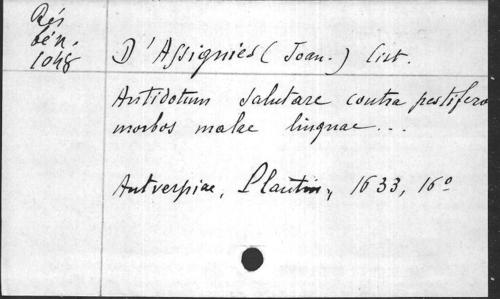 Rés
bén.
1048
D'Assignies (Joan.) Cist.
Antidotum salutare contra pestifero
morbos malae linguae...
Antverpiae, Plantin, 1633, 16o